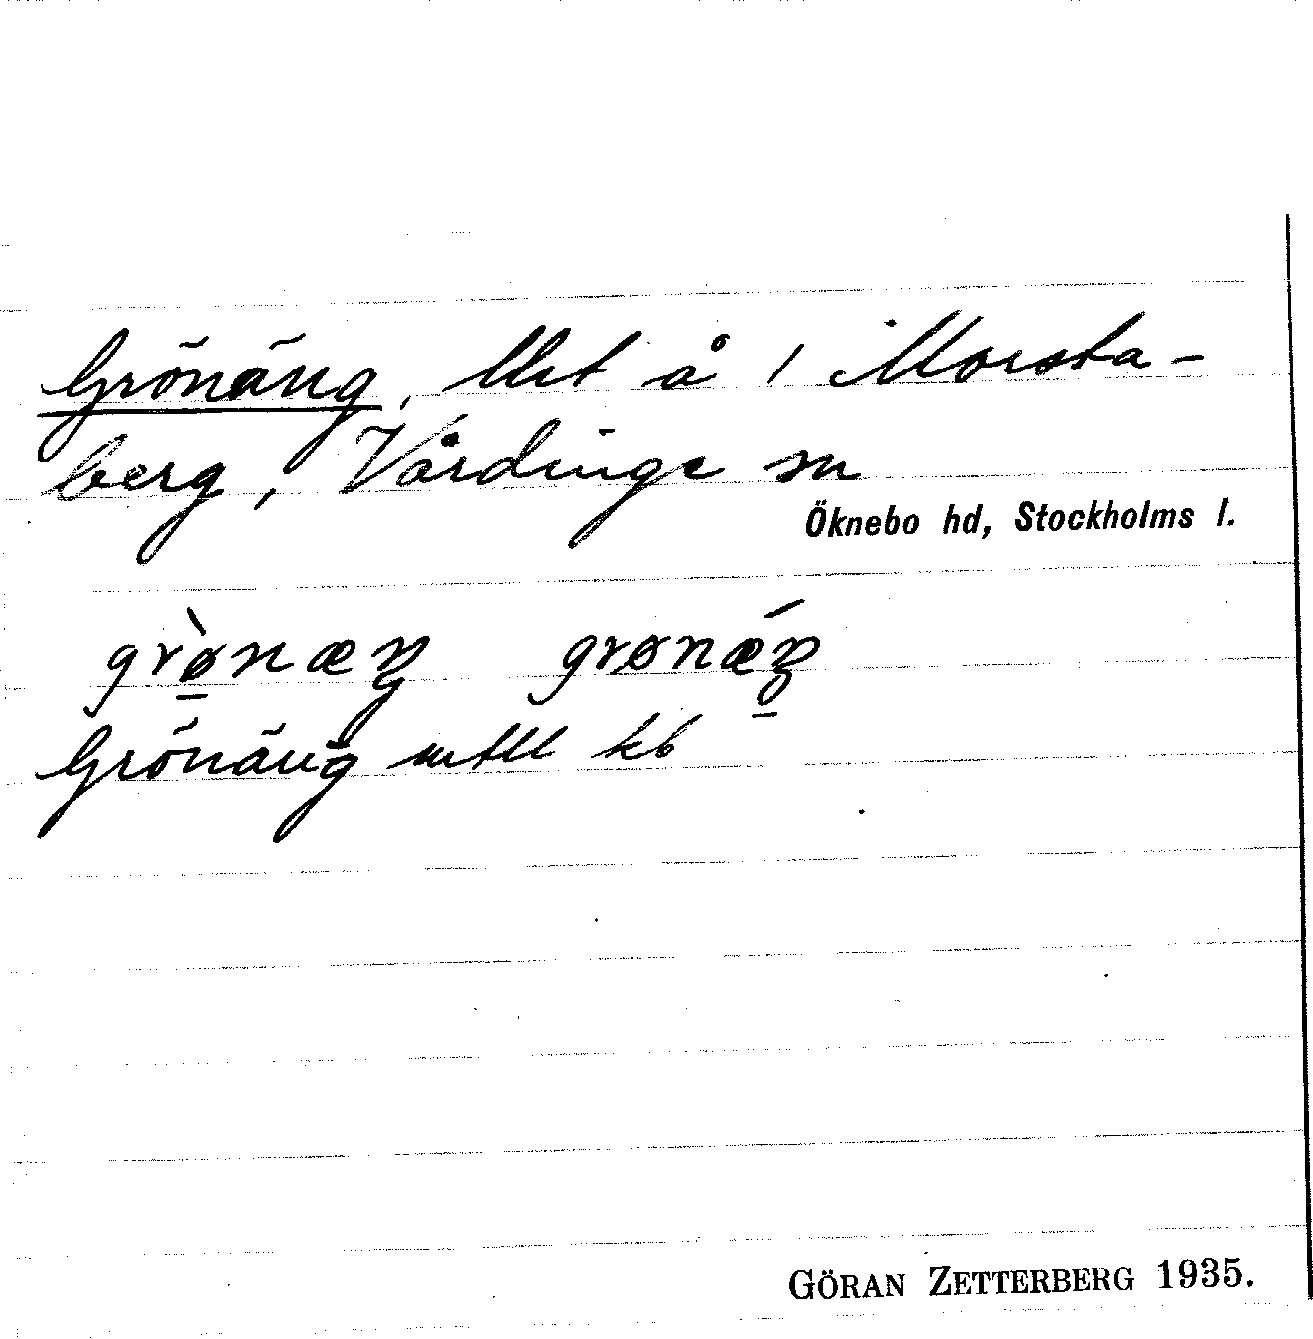 Grönäng, Utl å 1 Morsta-
berg, Vårdinge sn
Öknebo hd, Stockholms l.
grø̀næŋ grønǽŋ
Grönäng mtll kb
GÖRAN ZETTERBERG 1935.